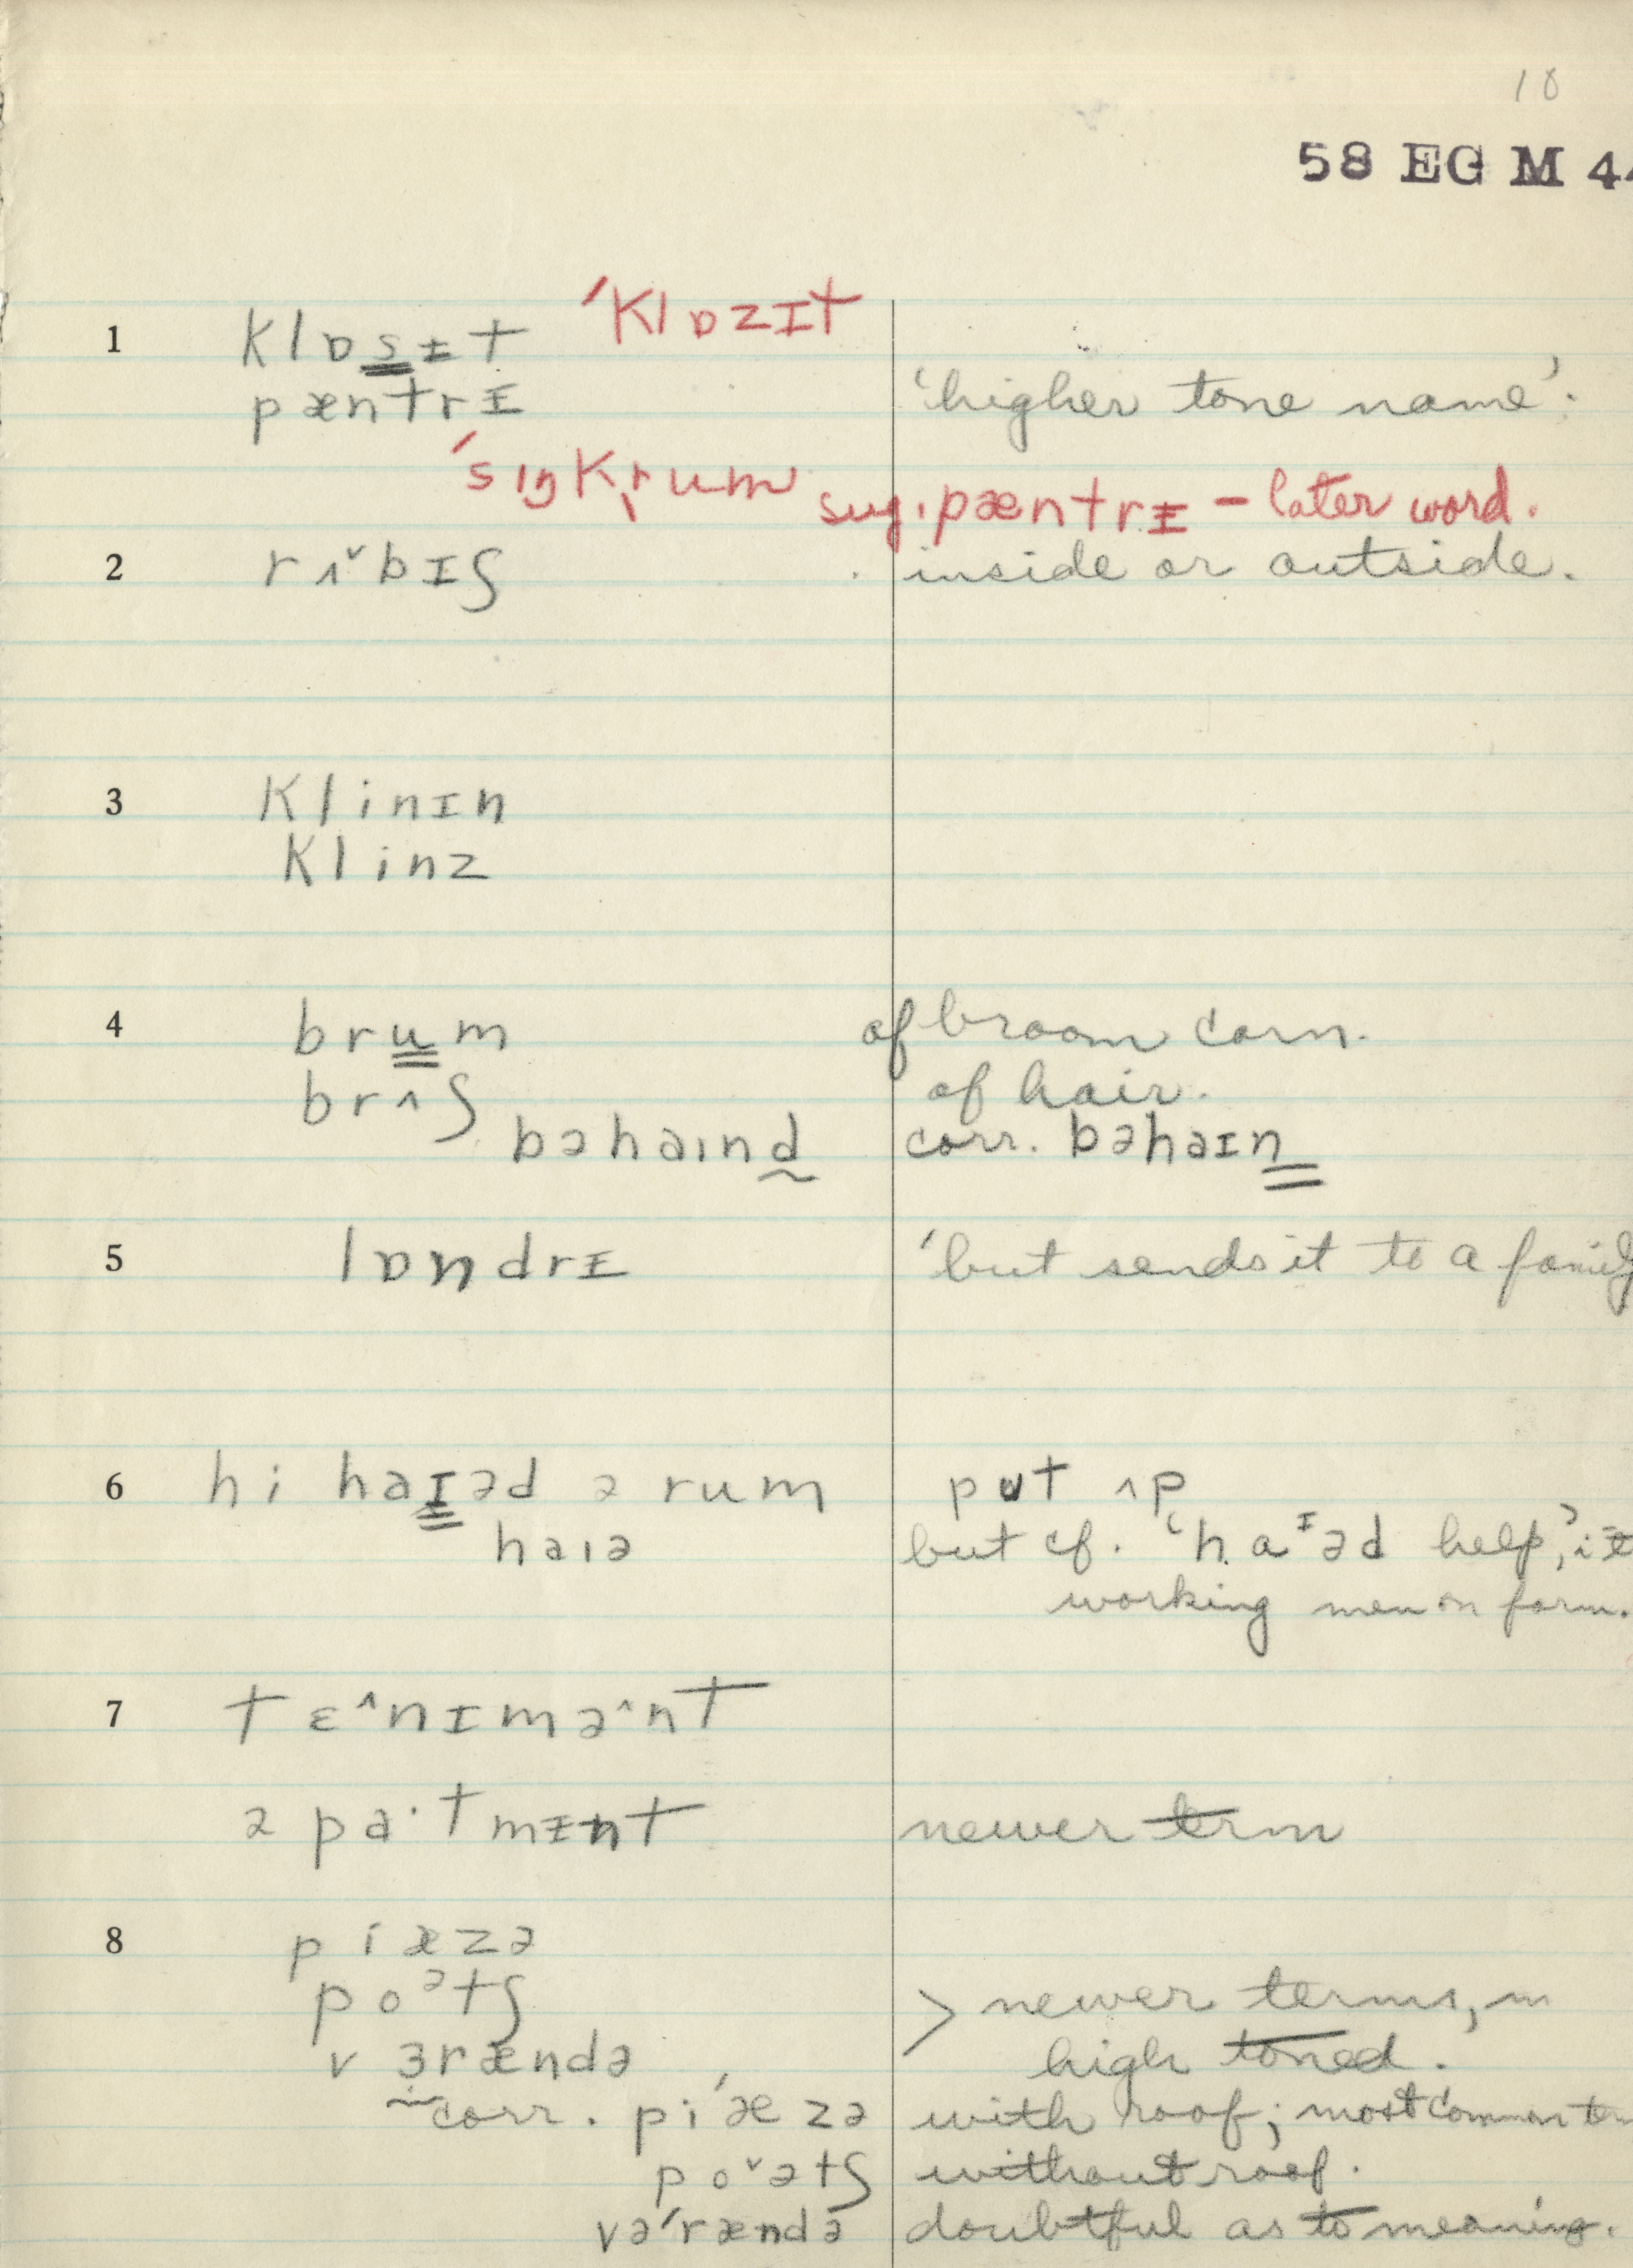 10
58 EG M 4
1 klɒsɪ̵t ˈklɒzɪt
pæntrɪ̵ 'higher tone name'.
ˈsɪŋkrum sug. pæntrɪ̵ – later word.
2 rʌ˅bɪʃ inside or outside.
3 klinɪn
klinz
4 brum of broom corn.
brʌʃ of hair.
bəhaɪnd corr. bəhaɪn
5 lɒndrɪ̵ 'but sends it to a family
6 hi haɪəd ə rum put ʌp
haɪə but cf. 'haᶦəd help,' i.e.
working men on farm.
7 tɛ^nɪmə^nt
əpa·tmɪ̵nt newer term
8 piæzə
poᵊtʃ > newer terms,
vɜrændə high toned.
corr. piˈæzə with roof; most common
po˅ətʃ without roof.
vəˈrændə doubtful as to meaning.